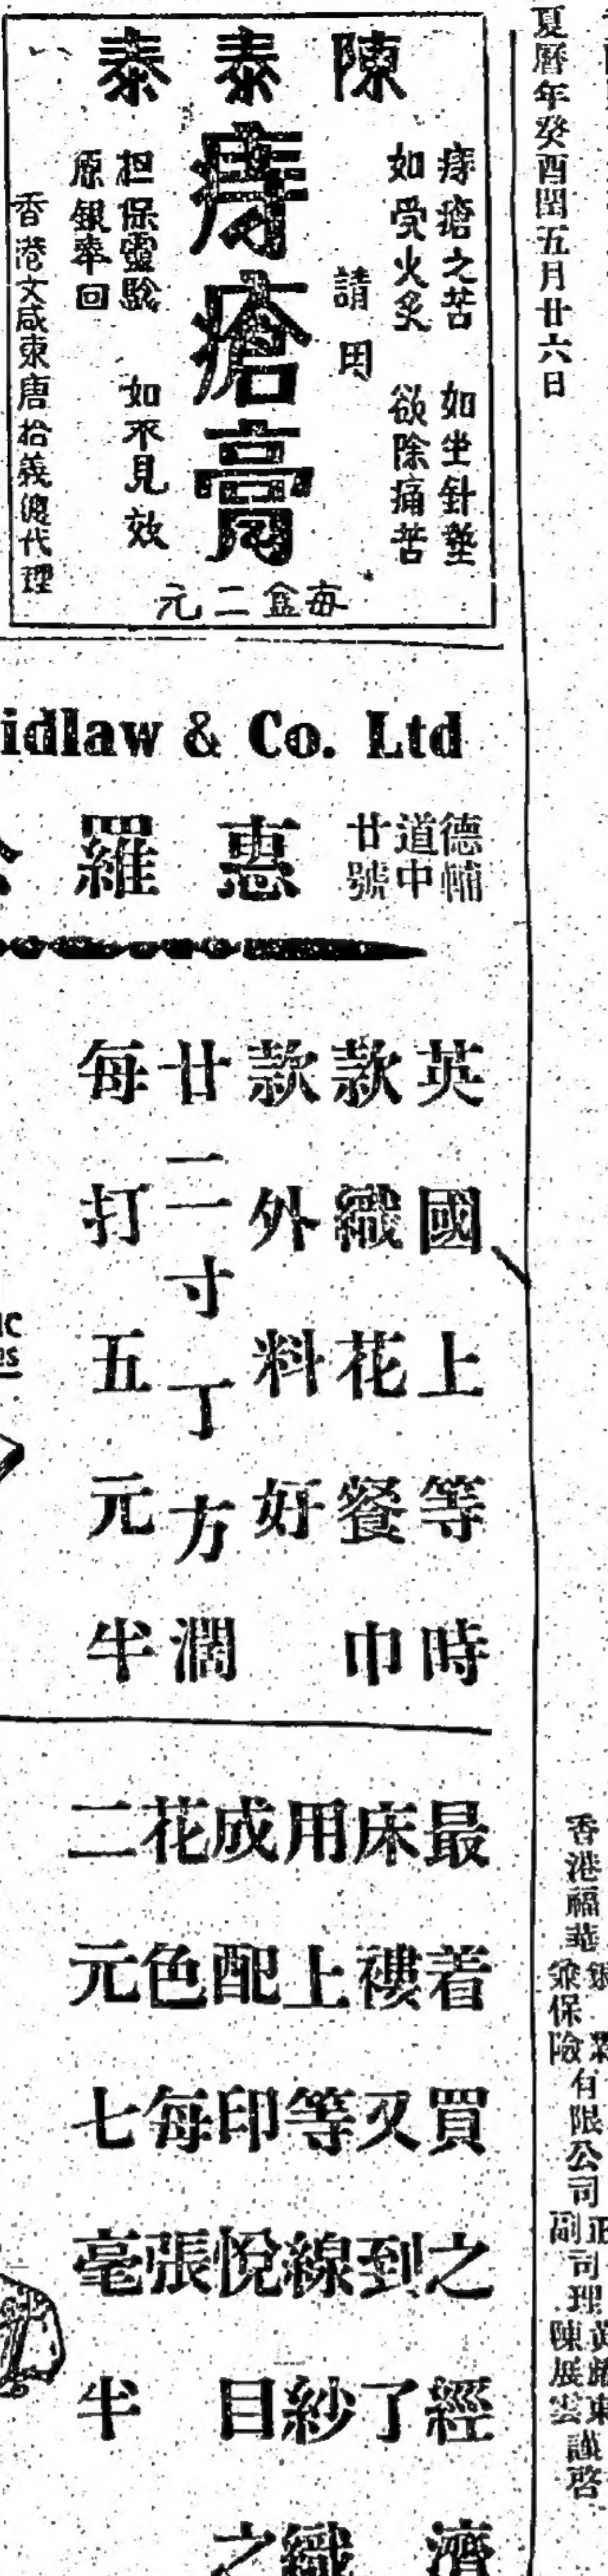 夏曆年癸酉閏五月廿六日
陳泰泰
痔瘡之苦 如坐針墊
如受火炙 欲除痛苦
請用
痔瘡膏
担保靈騐 如不見效
原銀奉回
香港文咸東唐拾義總代理
每盒二元
idlaw & Co. Ltd
德輔
道中
廿號
惠羅
英國上等時
款織花餐巾
款外料好
廿二寸丁方濶
每打五元半
最着買之經濟
床褸又到了
用上等線紗織
成配印悅目之
花色每張
二元七毫半
香港福華銀業
兼保險有限公司
正司理黃耀東
副司理陳展雲
謹啓